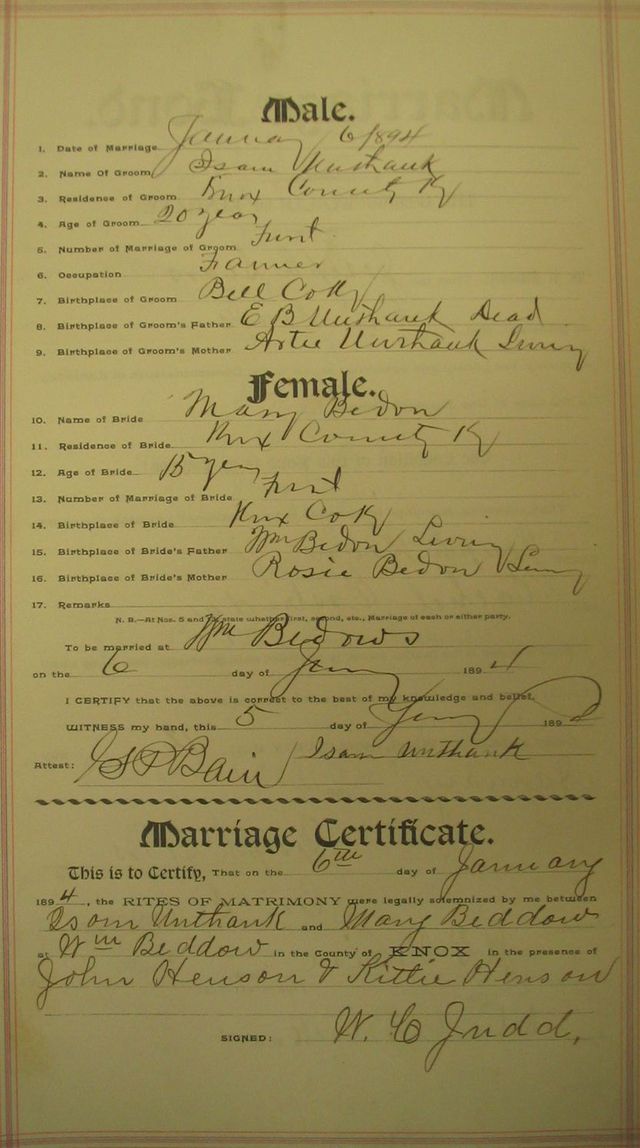 Male.
1. Date of Marriage January 6 1894
2. Name Of Groom Isam Unthank
3. Residence of Groom Knox County Ky
4. Age of Groom 20 year
5. Number of Marriage of Groom First
6. Occupation Farmer
7. Birthplace of Groom Bell Co Ky
8. Birthplace of Groom's Father E B Unthank Dead
9. Birthplace of Groom's Mother Artie Unthank Living
Female.
10. Name of Bride Mary Bedon
11. Residence of Bride Knox County Ky
12. Age of Bride 15 years
13. Number of Marriage of Bride First
14. Birthplace of Bride Knox Co Ky
15. Birthplace of Bride's Father Wm Bedon Living
16. Birthplace of Bride's Mother Rosie Bedon Living
17. Remarks
N. B.—At Nos. 5 and state whether first, second, etc., Marriage of each or either party.
To be married at Wm Bedows
on the 6 day of Jany 1894
I CERTIFY that the above is correct to the best of my knowledge and belief.
WITNESS my hand, this 5 day of Jany 189
Isam Unthank
Attest: Bain
Marriage Certificate.
This is to Certify, That on the 6th day of January
1894, the RITES OF MATRIMONY were legally solemnized by me between
Isom Unthank and Mary Beddow
at Wm Beddow in the County of KNOX in the presence of
John Henson & Kittie Henson
SIGNED: W. C. Judd,